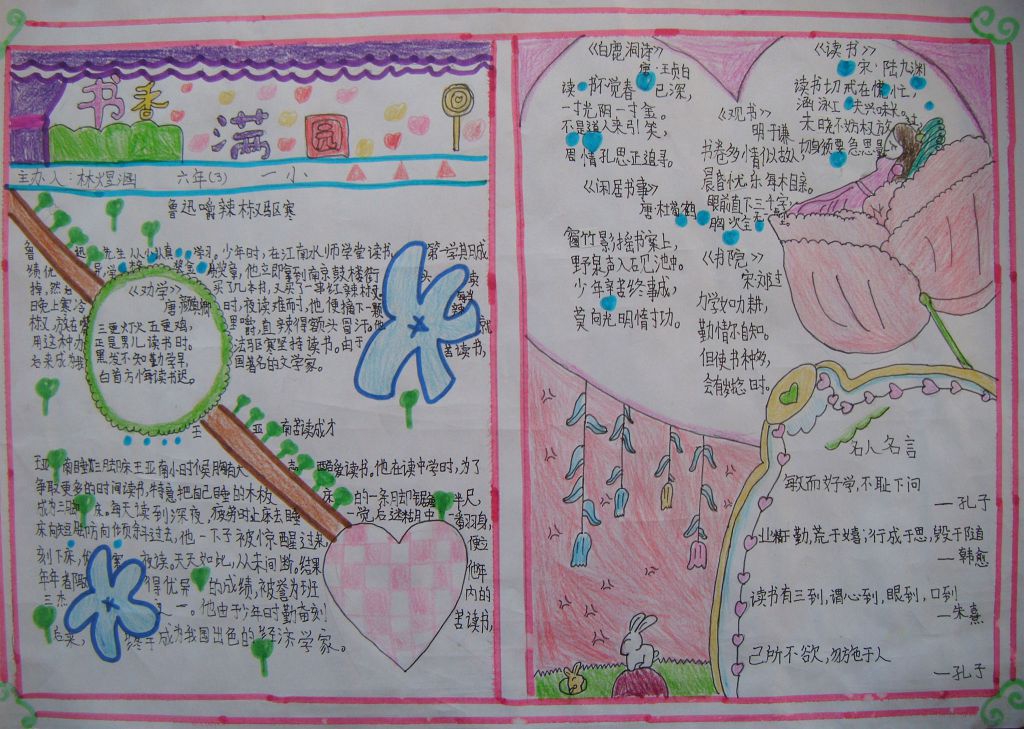 书香
满园
主办人：林煜涵 六年(3) 一小
鲁迅嚼辣椒驱寒
鲁迅先生从小认真学习。少年时，在江南水师学堂读书，第一学期成
绩优
他立即拿到南京鼓楼街
掉，然后买了几本书，又买了一串红辣椒
晚上寒冷时，夜读难耐时，他便摘下一颗
椒，放在嘴里嚼，直辣得额头冒汗。他就
用这种办法驱寒坚持读书。由于苦读书，
后来成为我国著名的文学家。
《劝学》
唐 颜真卿
三更灯火五更鸡，
正是男儿读书时。
黑发不知勤学早，
白首方悔读书迟。
王亚南苦读成才
王亚南睡三脚床王亚南小时候胸
读书。他在读中学时，为了
争取更多的时间读书，特意把自己睡的木板床的一条脚锯半尺，
成为三脚床。每天读到深夜，疲劳时上床去睡一觉后迷糊中一翻羽身，
床向短脚方向倾斜过去，他一下子被惊醒过来，便立
刻下床，夜读。天天如此，从未间断。结果他年
年年都取得优异的成绩，被誉为班内的
三杰之一。他由于少年时勤奋刻苦读书，
后来，终于成为我国出色的经济学家。
《白鹿洞诗》
唐·王贞白
读书不觉春已深，
一寸光阴一寸金。
不是道人来引笑，
周情孔思正追寻。
《闲居书事》
唐·杜荀鹤
窗竹影摇书案上，
野泉声入石见池中。
少年辛苦终事成，
莫向光明惰寸功。
《观书》
明于谦
书卷多情似故人，
晨昏忧乐每木目亲。
眼前直下三千字，
胸次全无一
《书院》
宋刘过
力学如力耕，
勤惰尔自知。
但使书种多，
会有岁稔时。
《读书》
宋·陆九渊
读书切戒在慌忙，
涵泳工夫兴味长。
未晓不妨权放过
切身须要急思量
名人名言
敏而好学，不耻下问
—孔子
业精于勤，荒于嬉；行成于思，毁于随
—韩愈
读书有三到，谓心到，眼到，口到
—朱熹
己所不欲，勿施于人
—孔子